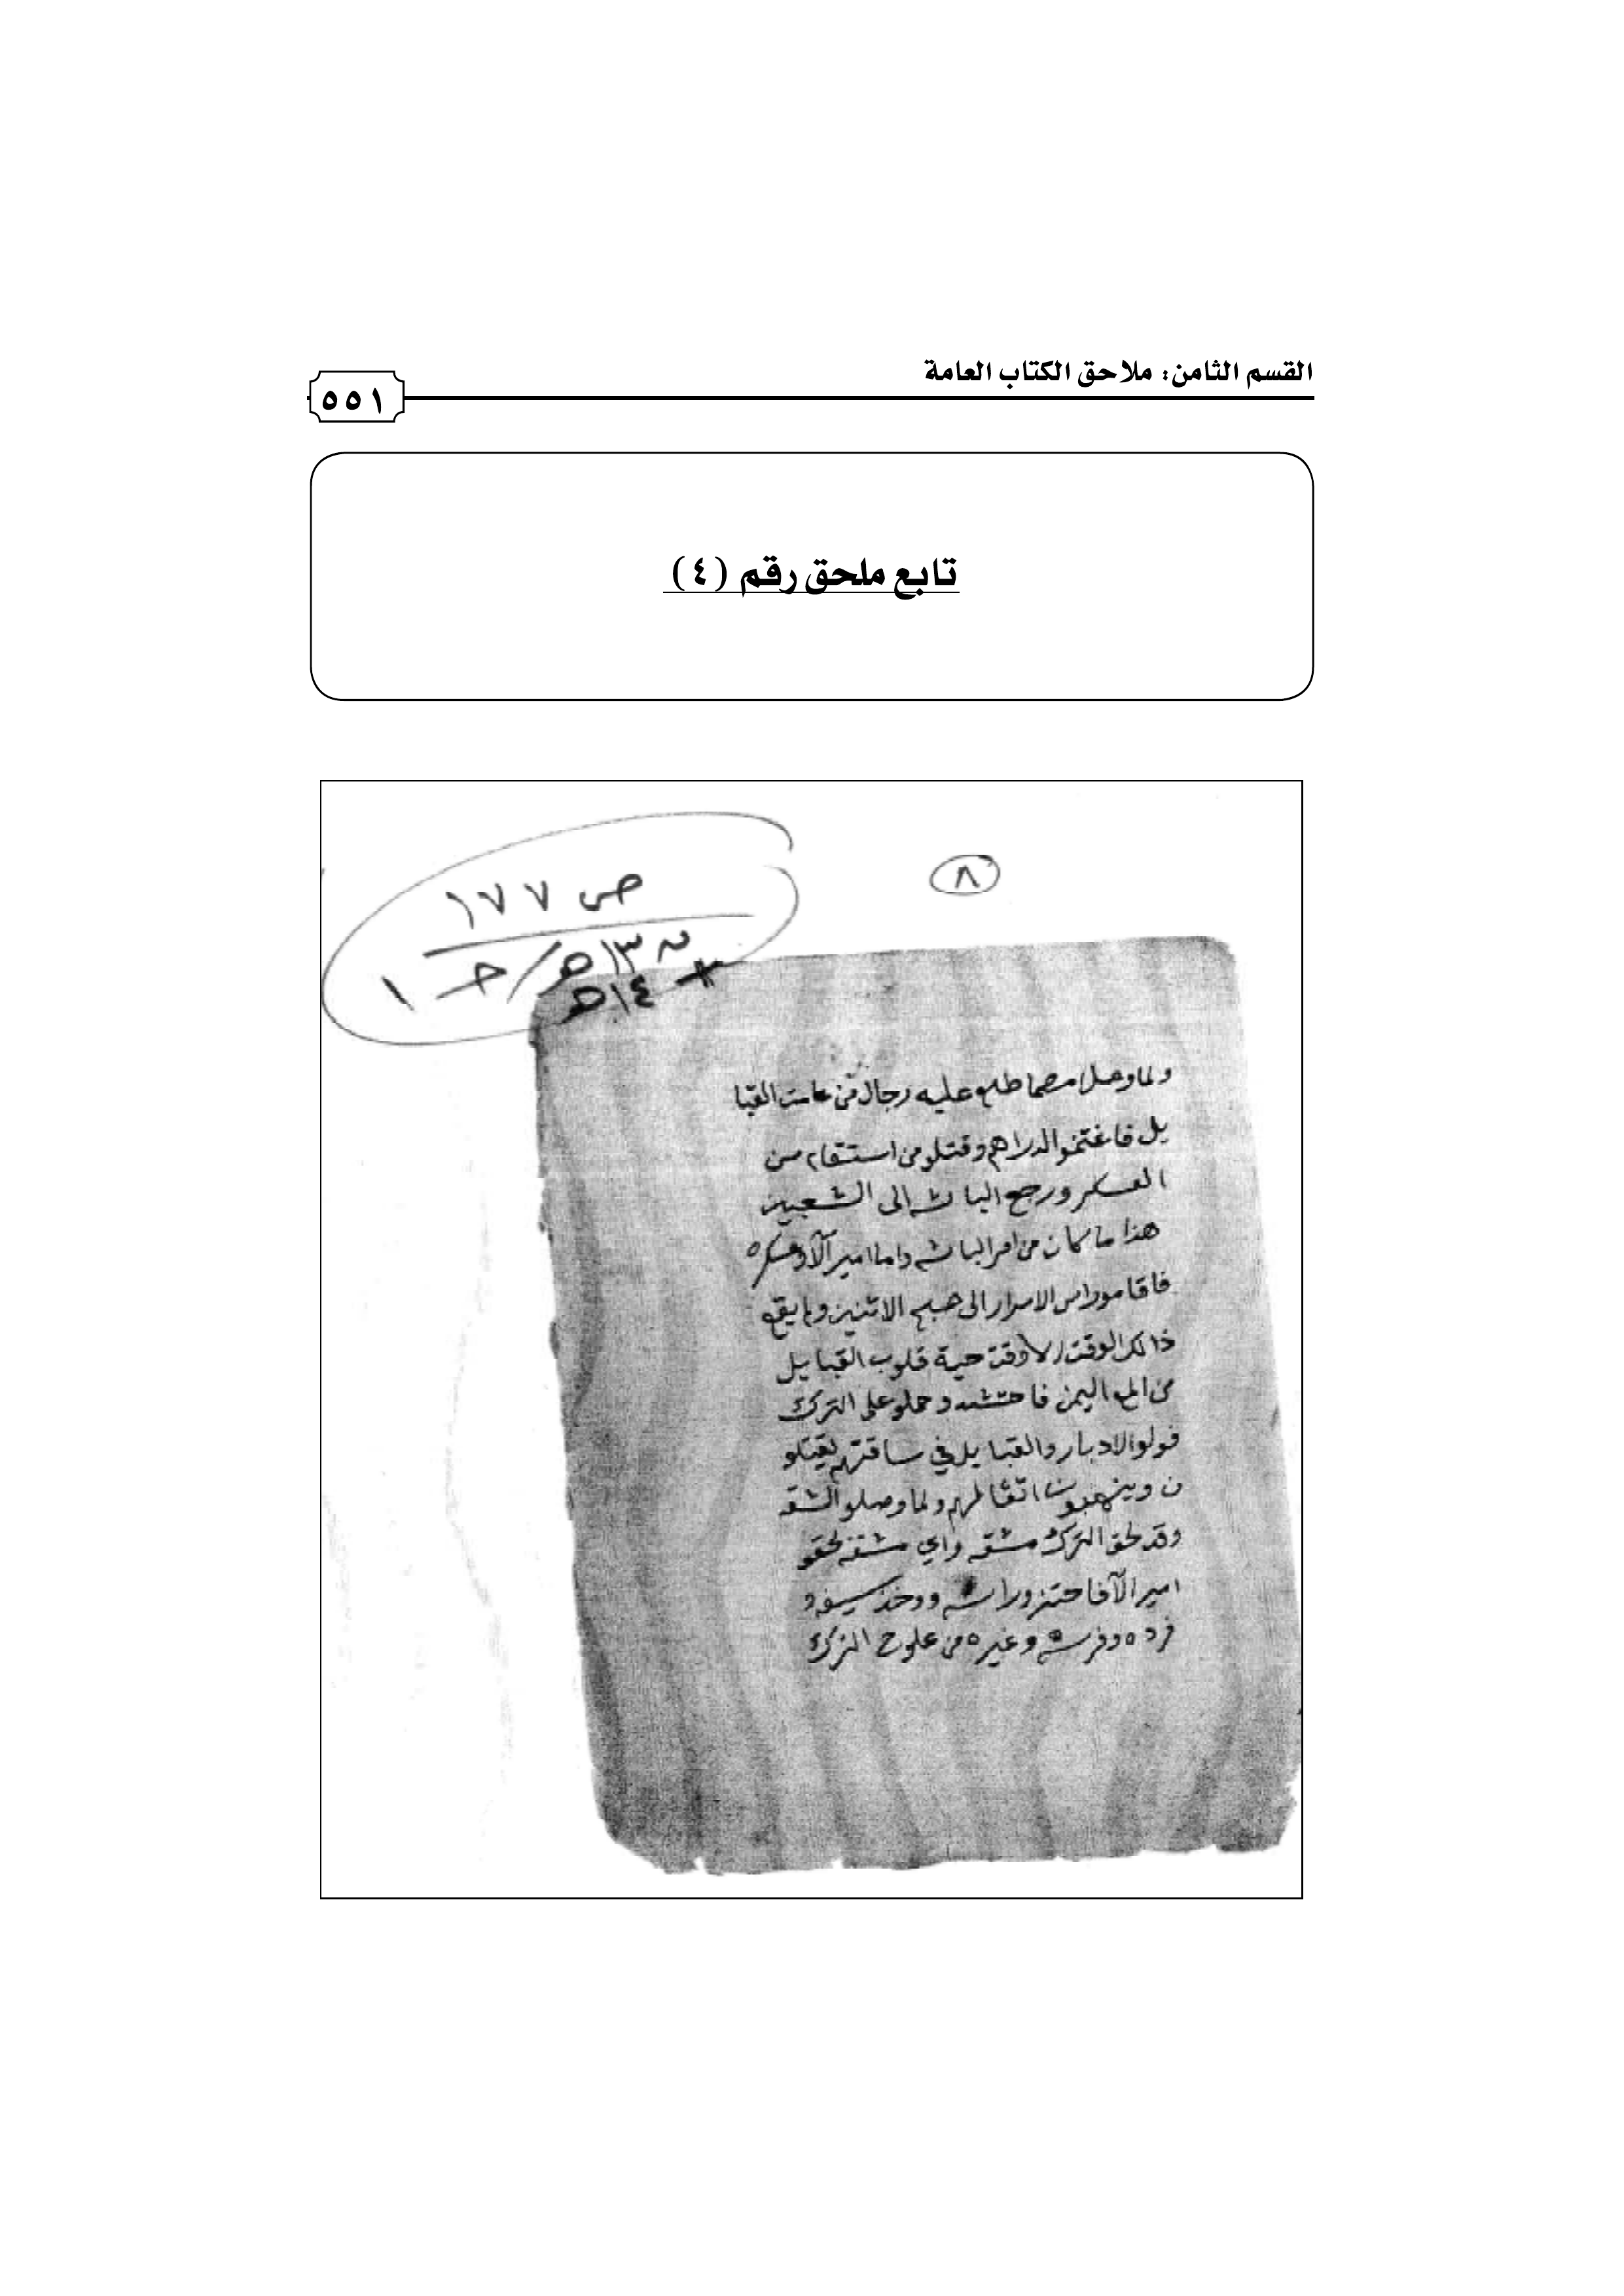 القسم الثامن: ملاحق الكتاب العامة
٥٥١
تابع ملحق رقم (٤)
٨
ص ١٧٧
ق ١٣هـ/ جـ ١
+ ١٤هـ
ولما وصل مصما طلع عليه رجال من عامت القبا
يل فاغتنمو الدراهم وقتلو من استقام من
العسكر ورجع الباشه الى الشعبين
هذا ما كان من امر الباشه واما امير آلآ وعسكره
فاقامو راس الاسرار الى صبح الاثنين ولم يقع
ذالك الوقت الا وقت حية قلوب القبايل
من المع اليمن فاحتشدو حملو على الترك
فولو الادبار والقبايل في ساقتهم يقتلو
ن وينهبون اثقالهم ولما وصلو الشقه
وقد لحق الترك مشقه واي مشقه لحقو
امير آلآ فاحتزو راسه ووخذ سيفه و
فرده وفرسه وغيره من علوج الترك